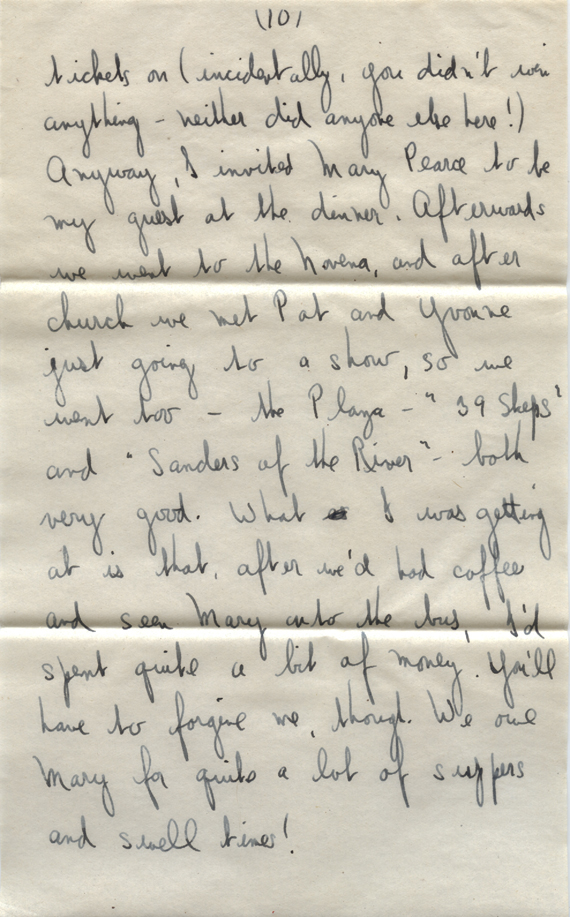 (10)
tickets on (incidentally, you didn't win
anything - neither did anyone else here!)
Anyway, I invited Mary Pearce to be
my guest at the dinner. Afterwards
we went to the Novena, and after
church we met Pat and Yvonne
just going to a show, so we
went too - the Plaza - "39 Steps"
and "Sanders of the River" - both
very good. What I was getting
at is that, after we'd had coffee
and seen Mary onto the bus, I'd
spent quite a bit of money. You'll
have to forgive me, though. We owe
Mary for quite a lot of suppers
and swell times!